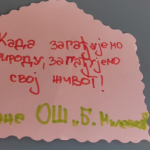 Када загађујемо
природу, загађујемо
свој живот!
ОШ „Б.